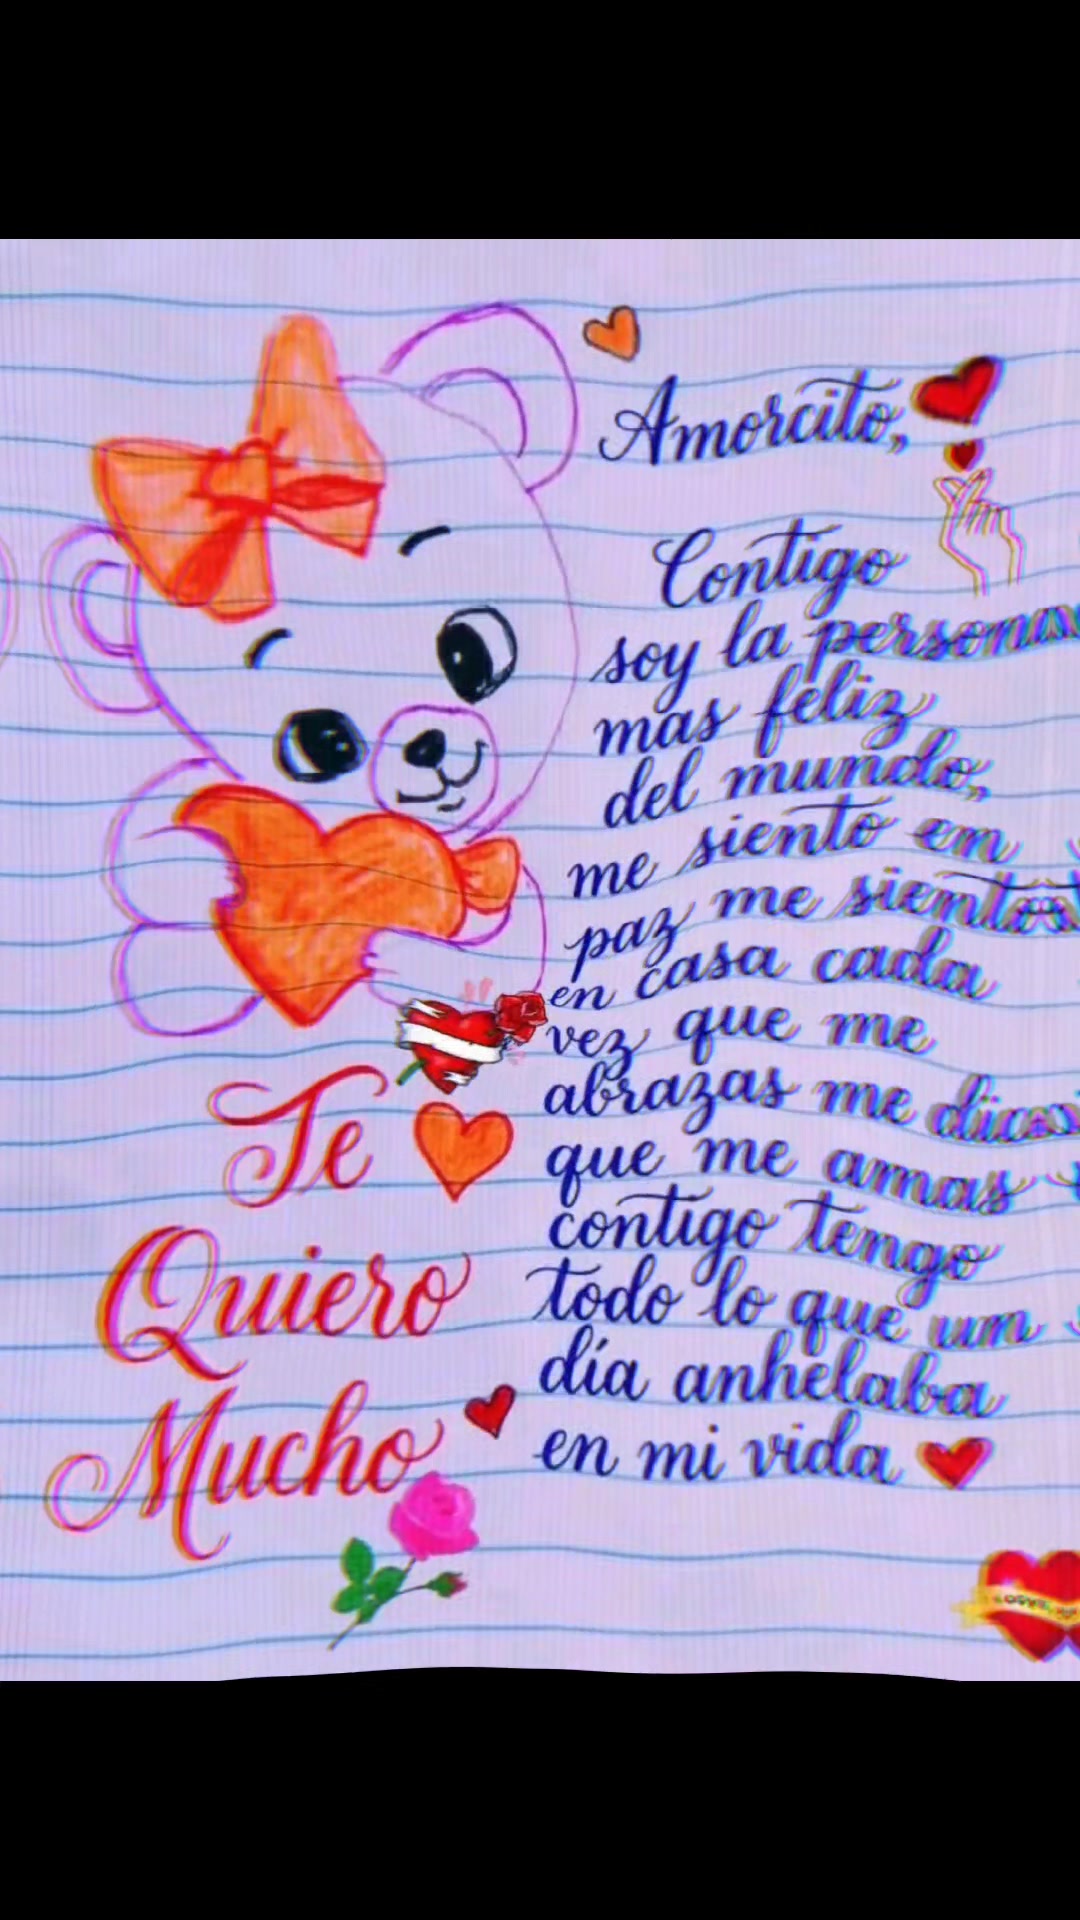 Amorcito,
Contigo
soy la persona
mas feliz
del mundo,
me siento en
paz me siento
en casa cada
vez que me
abrazas me dices
que me amas
contigo tengo
todo lo que un
día anhelaba
en mi vida
Te
Quiero
Mucho